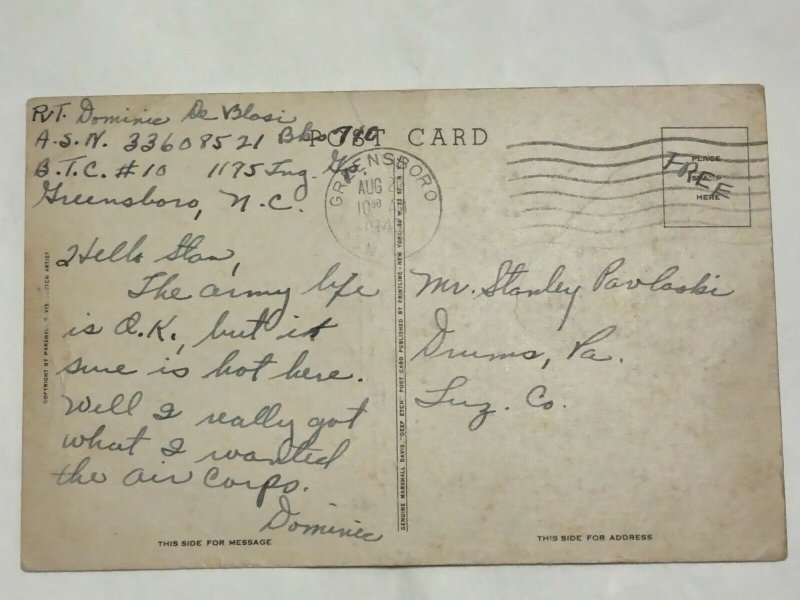 RT. Dominic De Blasi
A.S.N. 33608521 Bks 780
B.T.C. #10 1175 Tng. Gp.
Greensboro, N.C.
POST CARD
GREENSBORO
AUG
10 30 AM
194
N
PLACE
HERE
FREE
Hello Stan,
The army life
is O.K., but it
sure is hot here.
Well I really got
what I wanted
the air corps.
Dominic
Mr. Stanley Pavloski
Drums, Pa.
Luz. Co.
COPYRIGHT BY MARSHALL ETCH ARTIST
GENUINE MARSHALL DAVIS "DEEP ETCH" POST CARD PUBLISHED BY PRINTLINE-NEW YORK
THIS SIDE FOR MESSAGE
THIS SIDE FOR ADDRESS